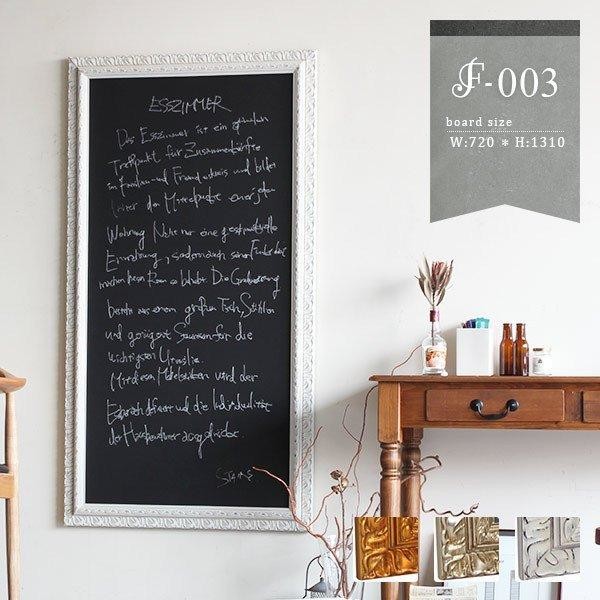 ESSZIMMER
Das Esszimmer ist ein
Treffpunkt für Zusammenkünfte
im Familien- und Freundeskreis und bildet
der Mittelpunkt einer jeden
Wohnung. Nicht nur eine geschmackvolle
Einrichtung, sondern auch
machen diesen Raum so beliebt. Die
besteht aus einem großen Tisch, Stühlen
und genügend Stauraum für die
wichtigsten Utensilien.
Mit diesen Möbelstücken wird der
und die Individualität
der Hausbewohner ausgedrückt.
STAINS
F-003
board size
W:720 * H:1310